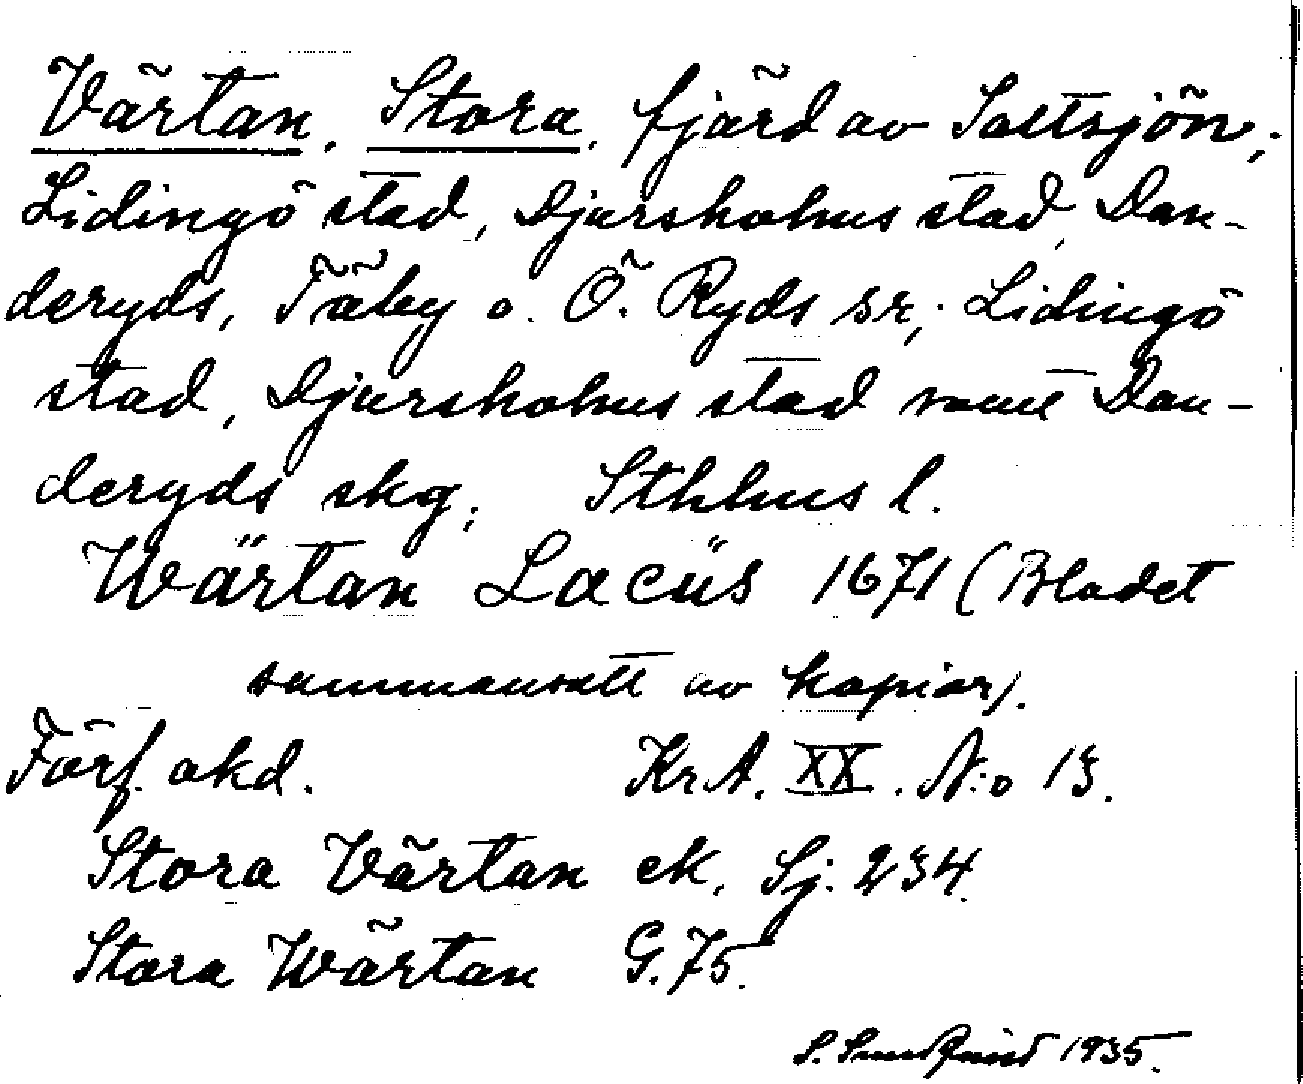 Värtan, Stora, fjärd av Saltsjön;
Lidingö stad, Djursholms stad, Dan-
deryds, Täby o. Ö. Ryds sr; Lidingö
stad, Djursholms stad samt Dan-
deryds skg; Sthlms l.
Wärtan Lacüs 1671 (Bladet
sammansatt av kopior).
Förf. okd. KrA. XX. N:o 13.
Stora Värtan ek. Sj. 234.
Stora Wärtan G. 75.
S. Sundqvist 1935.